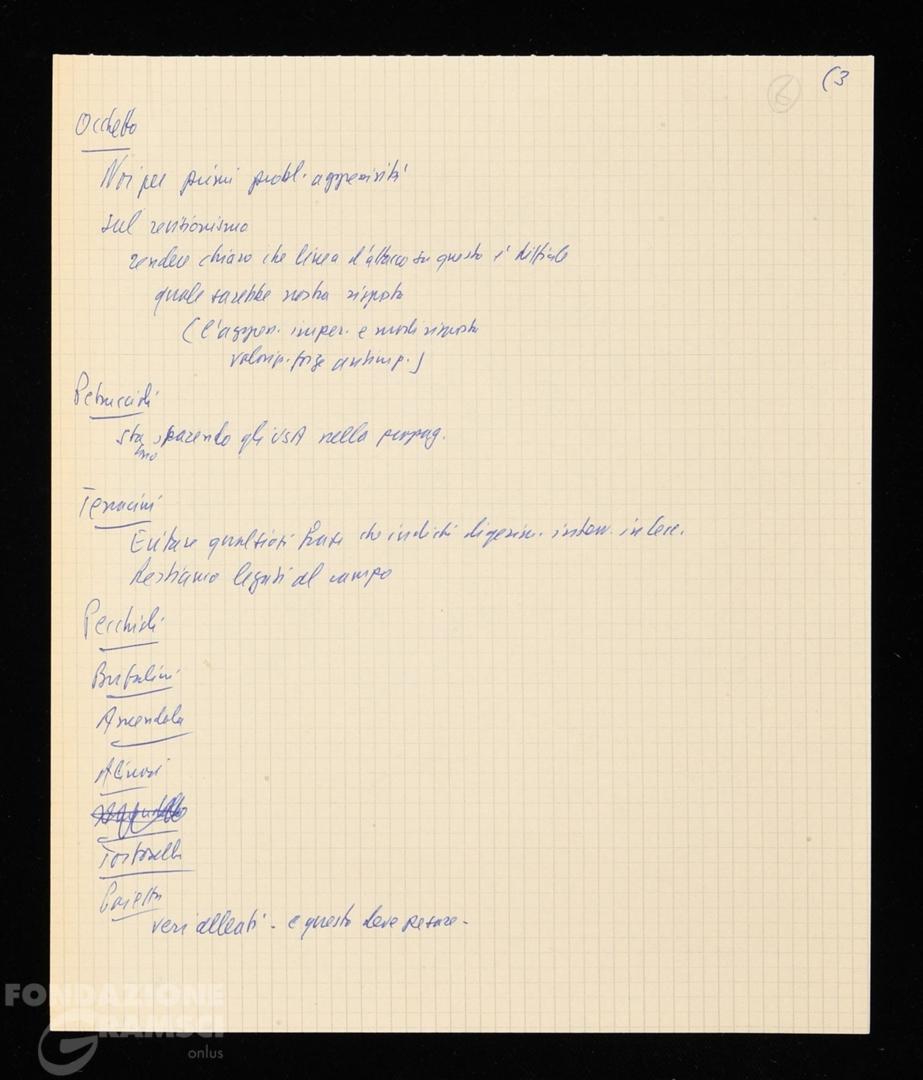 (3
6
Occhetto
Noi per primi probl. aggressività
sul revisionismo
rendere chiaro che linea d'attacco su questo è difficile
quale sarebbe nostra risposta
(l'aggres. imper. e modi risposta
valoriz. forze antimp.)
Petruccioli
sta sparendo gli USA nella propag.
nno
Terracini
Evitare qualsiasi frase che indichi
Restiamo legati al campo
Pecchioli
Bufalini
Amendola
Alinovi
Tortorella
Pajetta
veri alleati - e questo deve pesare -
FONDAZIONE
GRAMSCI
onlus